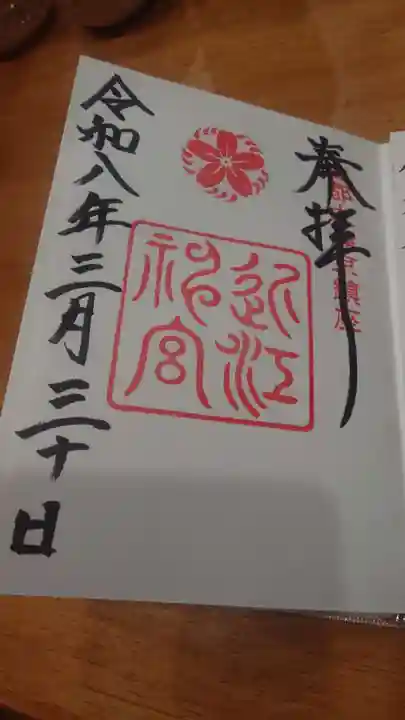 奉拝
京鎮座
近江
神宮
令和八年三月三十日